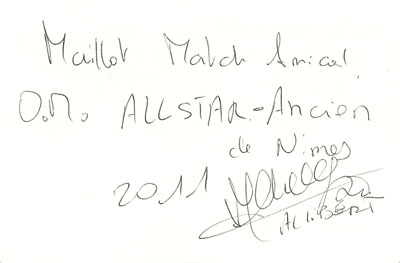 Maillot Match Amical
O.M. ALLSTAR-Ancien
de Nimes
2011
ALIBERT